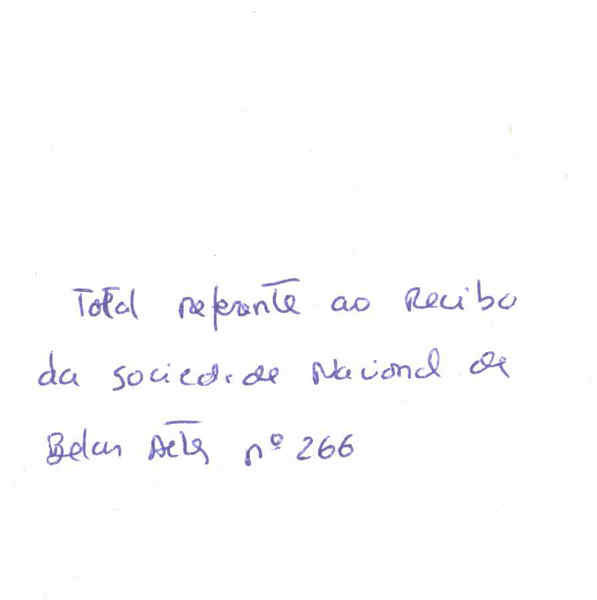 Total referente ao Recibo
da Sociedade Nacional de
Belas Artes nº 266